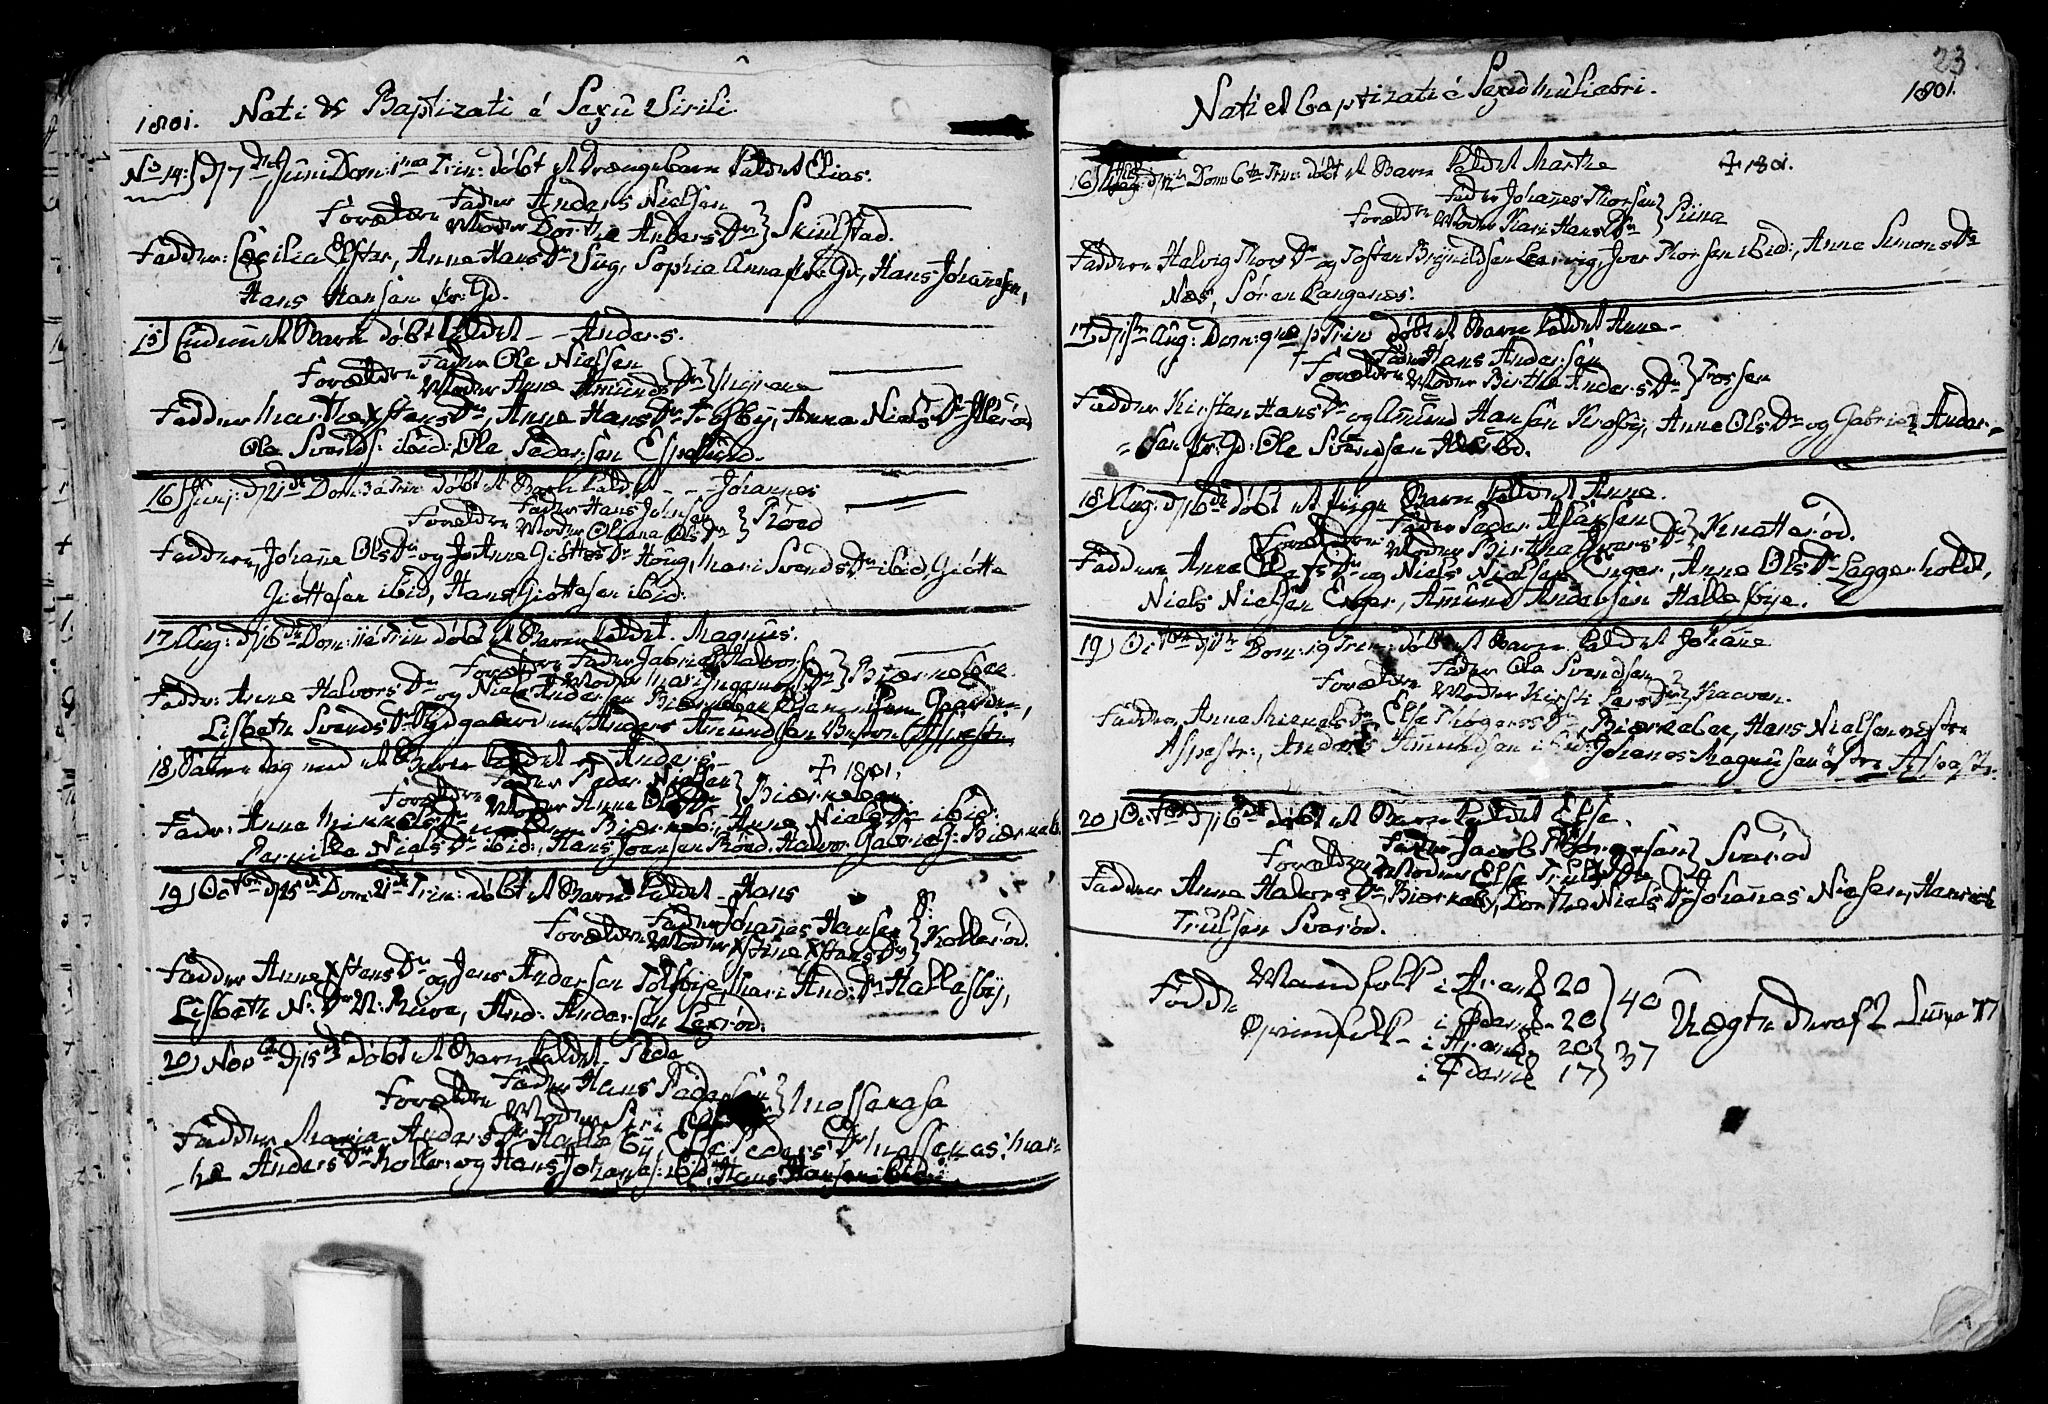 1801. Nati & Baptizati é Sexu Virili.
No 14) d 7de Juni Dom: 1ma Trin: döbt et Drængebarn kaldet Elias.
Forældre Fader Anders Nielsen
Moder Dorthe Anders Dr } Skiulstad.
Faddere: Cæcilia Ester, Anne Hans Dr Sug, Sophia Anna pr: Gd, Hans Johansen,
Hans Hansen pr: Gd.
15) Barn döbt kaldet - - Anders.
Forældre Fader Ole Nielsen
Moder Anne Amunds Dr
Fadder Marthe Xstens Dr, Anne Hans Dr Tofsby, Anne Niels Dr
Ole Svends: ibid: Ole Peders:en Espelund.
16) Junj: d 21de Dom: 3a Trin: döbt et Barn kaldet - - Johannes
Forældre Fader Hans Johnsen
Moder Oliana Ols Dr } Röed
Faddere, Johanne Ols Dr og Anne Giöttes Dr Houg, Mari Svends Dr ibid, Giötte
Giöttesen ibid, Hans Giöttesen ibid:
17 Aug: d 16de Dom: 11te Trin döbt et Barn kaldet. Magnus.
Forældre Fader Gabriel Halvors:
Moder Mari Ingemors Dr } Biærnebee.
Faddr: Anne Halvors Dr og Niels Andersen
Lisbeth Svends Dr Anders Amundsen
18) Samme dag med et Barn kaldet - Anders -
Forældre Fader Peder Nielsen + 1801.
Moder Anne Ols Dr } Biærnebee
Fadr: Anne Mikkels Dr Biærneb:, Anne Niels Dr ibid:
Pernille Niels Dr ibid:, Hans Joensen Röed, Halvor Gabriels: Biærneb:
19) Octbr d 25de Dom: 21de Trin: döbt et Barn kaldet - Hans
Forældre Fader Johannes Hansen
Moder Xstine Xstens Dr } Kolleröd.
Fadder Anne Xstens Dr og Jens Andersen Tofsbye, Mari And: Dr Hallesby,
Lisbeth N: Dr N: Ruve, And: Andersen Lexröd.
20) Novbr d 15de döbt et Barn kaldet Peder
Forældre Fader Hans Pedersen
Moder Siri } Mossenasa
Fadder Maria Anders Dr Hallesby, Else Peders Dr Mossenas: Mar-
-the Anders Dr Koller: og Hans Johanes: ibid, Hans Hansen ibid:
23.
Nati et baptizati é Sexu Muliebri. 1801.
16) d 12te Dom 6te Trin: döbt et Barn kaldet Marthe + 1801.
Forældre Fader Johannes Thorsen
Moder Kari Hans Dr } Riina
Faddere Helvig Thors Dr og Tosten Brynildsen Leervig, Iver Thorsen ibid:, Anne Simons Dr
Næs, Sören Langenæs.
17 Aug: Dom: 9na p Trin döbt et Barn kaldet Anne -
Forældre Fader Hans Andersen
Moder Birthe Anders Dr } Trossen
Fadder Kirsten Hans Dr og Amund Hansen Krogby, Anne Ols Dr og Gabriel Ander-
-sen pr: Gd: Ole Svendsen
18) Aug: d 16de döbt et Pige Barn kaldet Anne.
Forældre Fader Peder
Moder Birthe Ivers Dr } Knatteröd.
Faddere Anne Olafs Dr og Niels Nielsen Enger, Anne Ols Dr Laggerholdt,
Niels Nielsen Enger, Amund Andersen Hallesbye.
19) Octobr Dom: 19 Trin: döbt et Barn kaldet Johanne
Forældre Fader Ole Svendsen
Moder Kirsti Lars Dr
Faddere, Anne Mickels Dr Else Thögers Dr Biærnebee, Hans Nielsen vestre
Aspestr:, Anders Amundsen ibid: Johanes Magnusen östre Aspestr:
20) Octbr d 16de döbt et Barn kaldet Else.
Forældre Fader Jacob Thögersen
Moder Else Truls Dr } Svaröd
Fadder Anne Halvors Dr Biærneb, Dorthe Niels Dr Johannes Nielsen, Henrich
Trulsen Svaröd.
Födde Mandfolk i Arend 20
i Ödem 20 } 40
Qvindfolk - i Arend 20
i Ödem 17 } 37
Uægte deraf 2 Suma 77